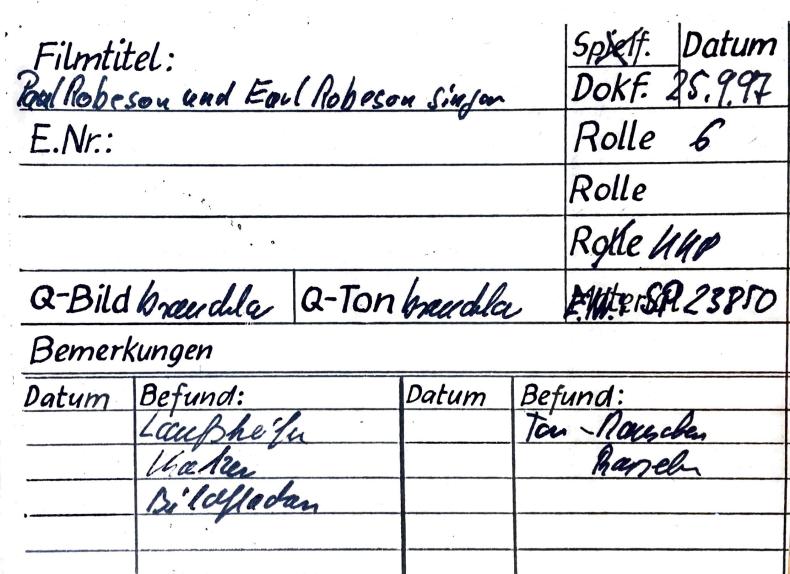 Filmtitel: Spielf. Datum
Paul Robeson und Earl Robeson singen Dokf. 25.9.97
E.Nr.: Rolle 6
Rolle
Rolle
Q-Bild brauchbar Q-Ton brauchbar 23850
Bemerkungen
Datum Befund: Datum Befund:
Laufstreifen Ton - Rauschen
Kratzer Rasseln
Bildschaden